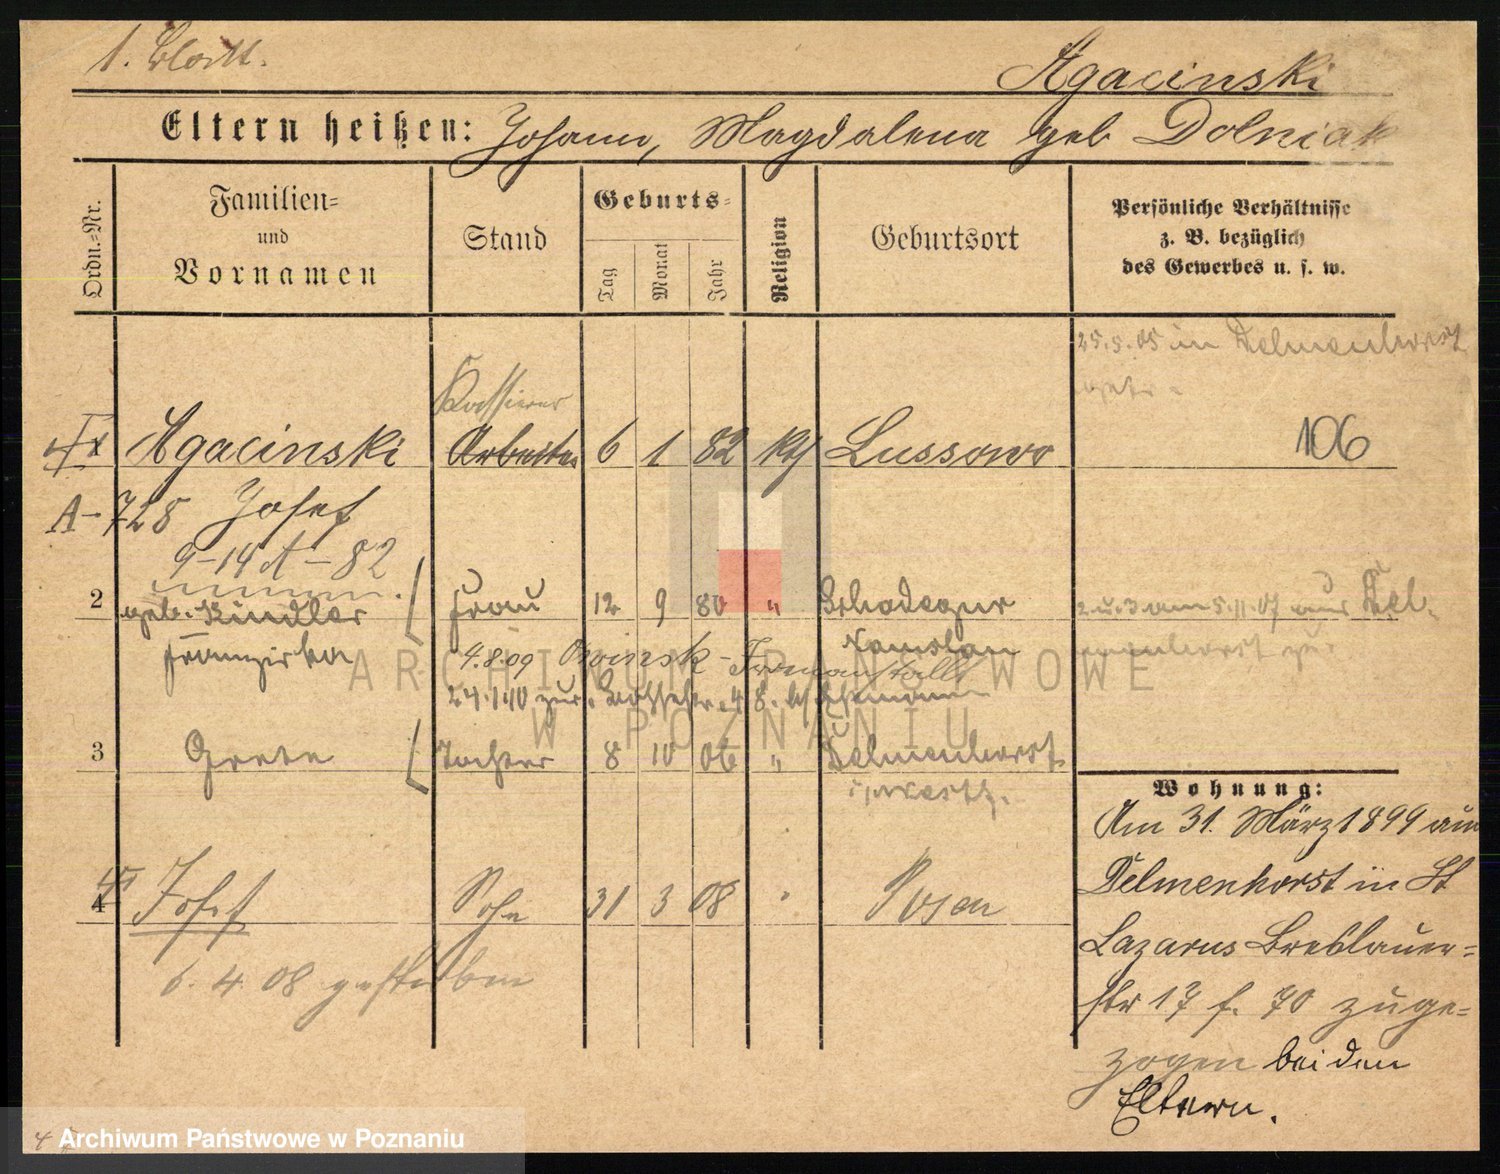 1. Blatt.
Agacinski
Eltern heißen: Johann, Magdalena geb Dolniak
Ordn.=Nr.
Familien=
und
Vornamen
Stand
Geburts=
Tag
Monat
Jahr
Religion
Geburtsort
Persönliche Verhältnisse
z. B. bezüglich
des Gewerbes u. s. w.
25.5.05 in Delmenhorst
getr.
Kassierer
Agacinski Arbeiter 6 1 82 kth Lussowo 106
A-728 Josef
9-14 A-82
2 geb. Kindler Frau 12 9 80 " 2 u. 3 am 5.11.07 aus Del=
Franziska Namslau menhorst zu.
4.8.09 Owinsk-Irrenanstalt
24.1.10 zur.
3 Grete Tochter 8 10 06 " Delmenhorst
4 Josef Sohn 31 3 08 " Posen
6.4.08 gestorben
Wohnung:
Am 31. März 1899 aus
Delmenhorst in St
Lazarus Breslauer=
str 17 f. 70 zuge=
zogen bei den
Eltern.
ARCHIWUM PAŃSTWOWE
W POZNANIU
Archiwum Państwowe w Poznaniu